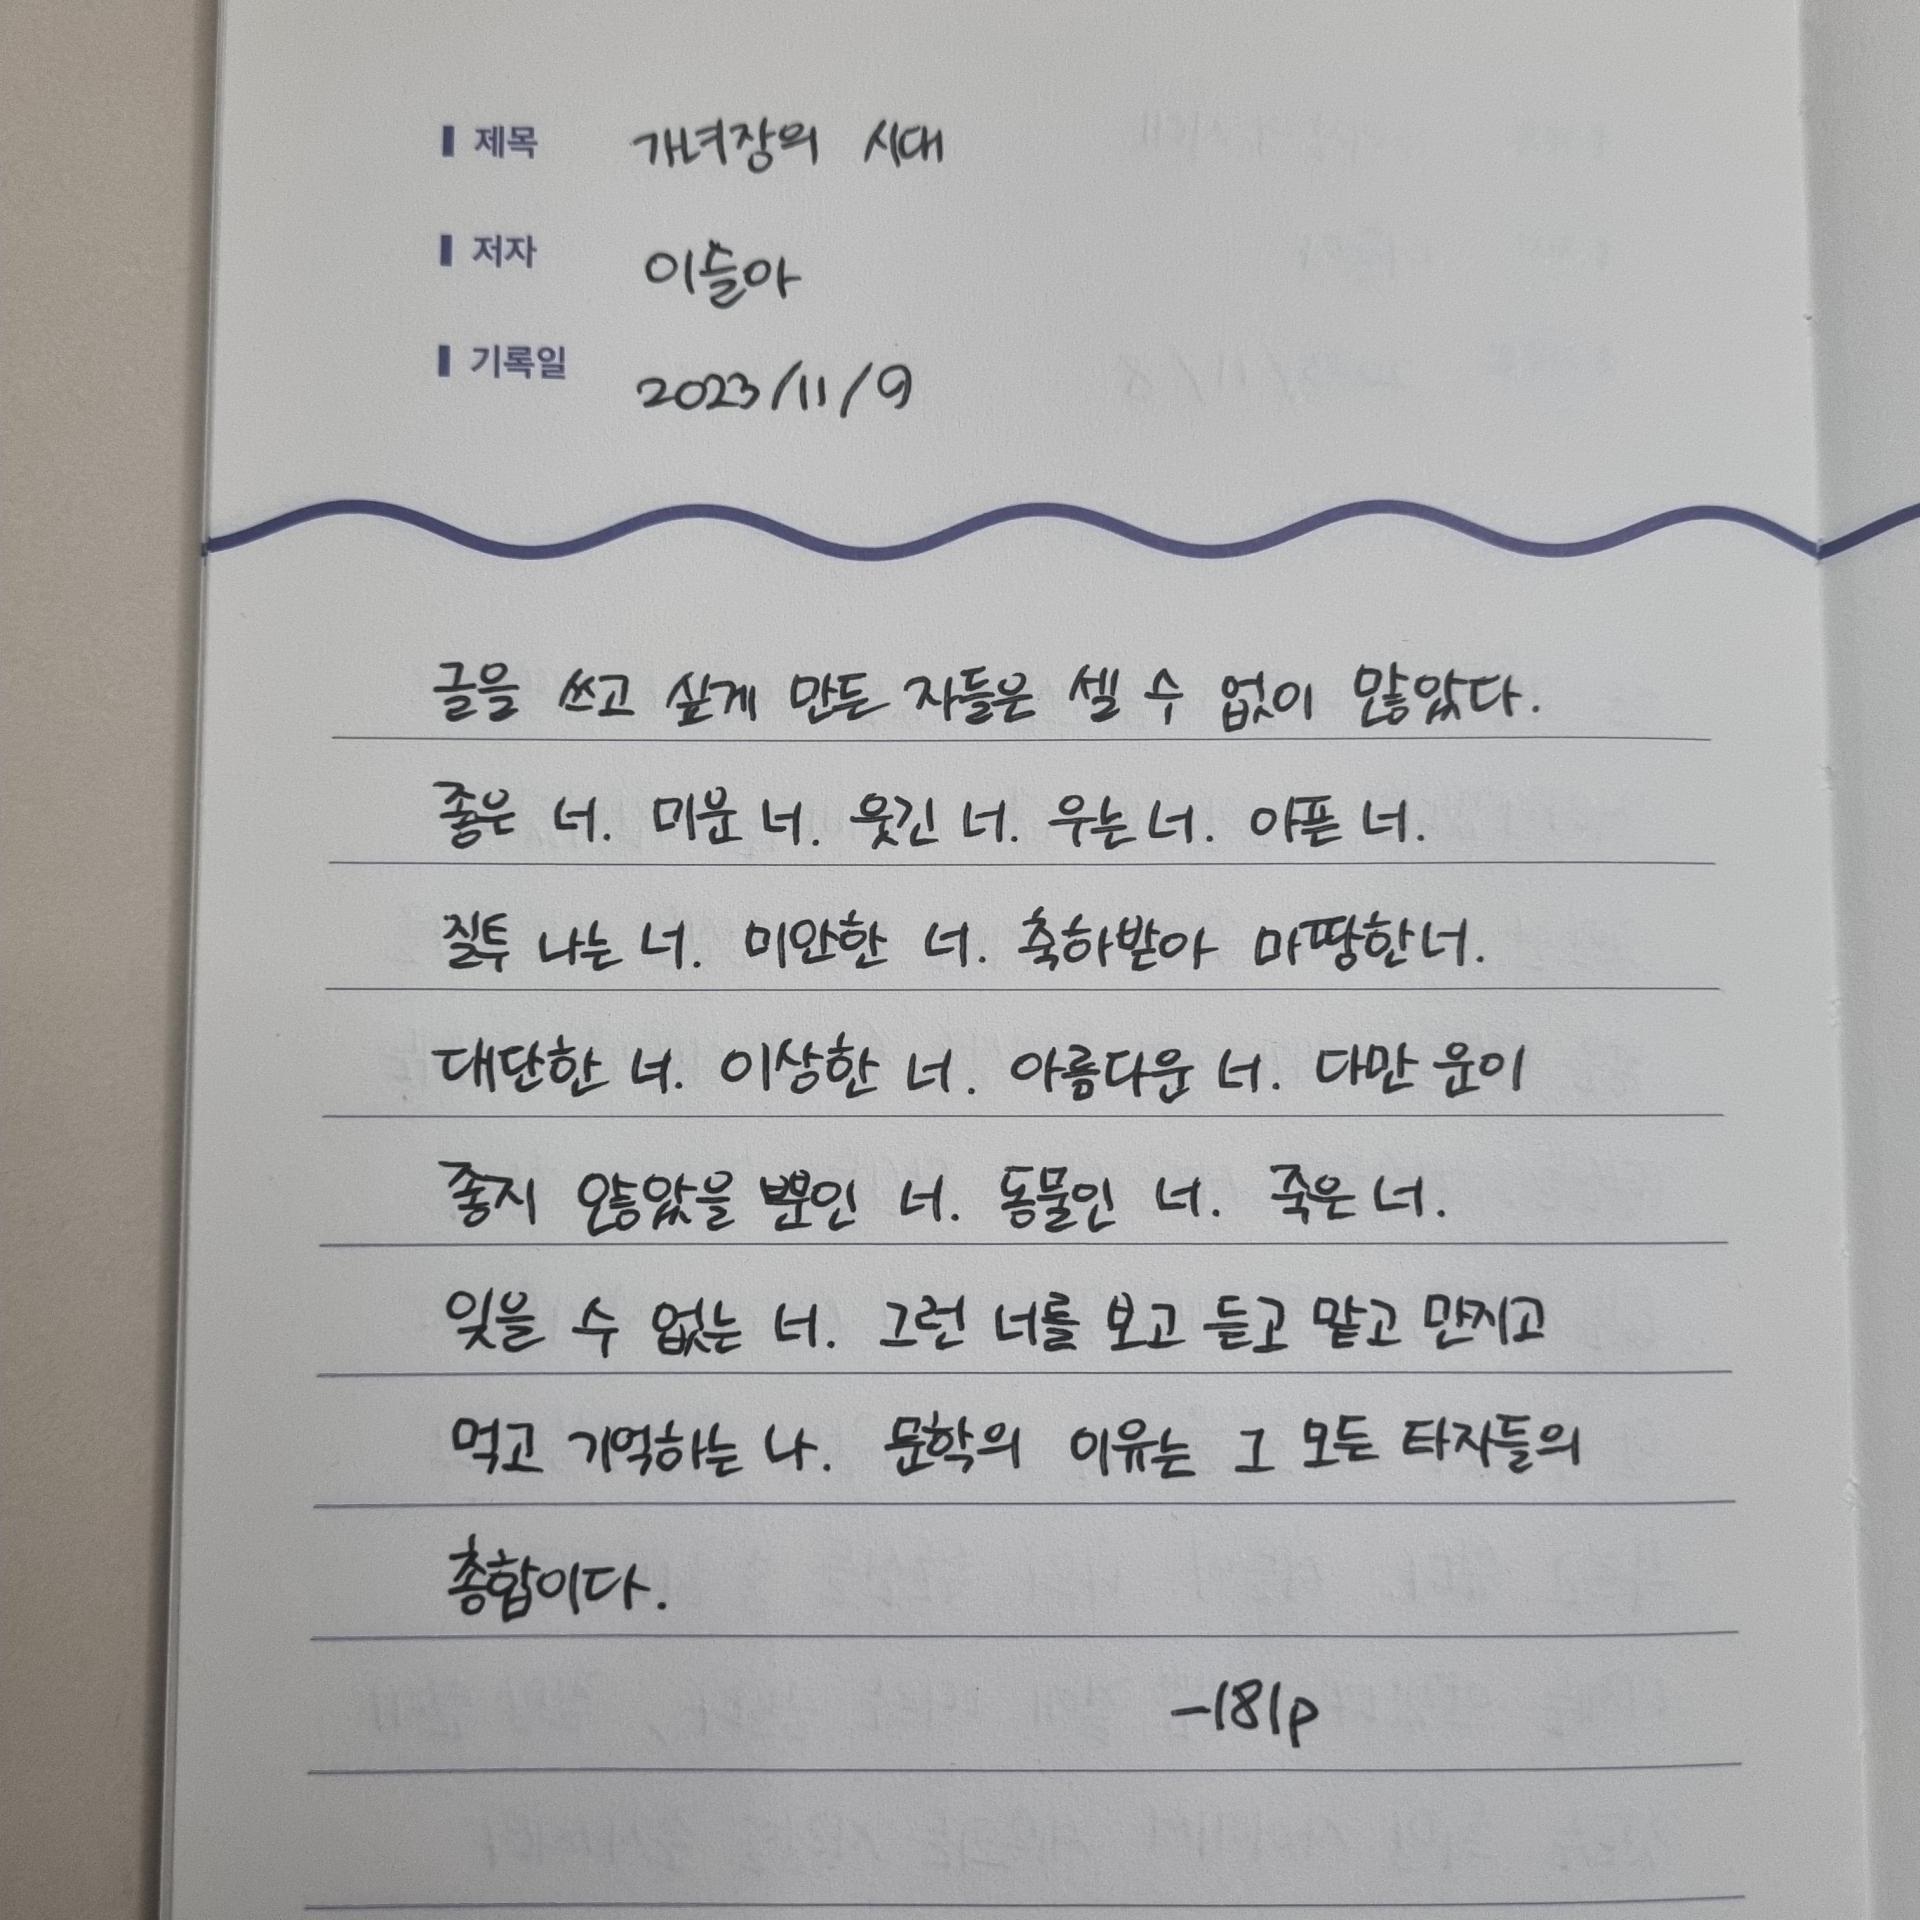 제목 가녀장의 시대
저자 이슬아
기록일 2023/11/9
글을 쓰고 싶게 만든 자들은 셀 수 없이 많았다.
좋은 너. 미운 너. 웃긴 너. 우는 너. 아픈 너.
질투 나는 너. 미안한 너. 축하받아 마땅한 너.
대단한 너. 이상한 너. 아름다운 너. 다만 운이
좋지 않았을 뿐인 너. 동물인 너. 죽은 너.
잊을 수 없는 너. 그런 너를 보고 듣고 맡고 만지고
먹고 기억하는 나. 문학의 이유는 그 모든 타자들의
총합이다.
-181p